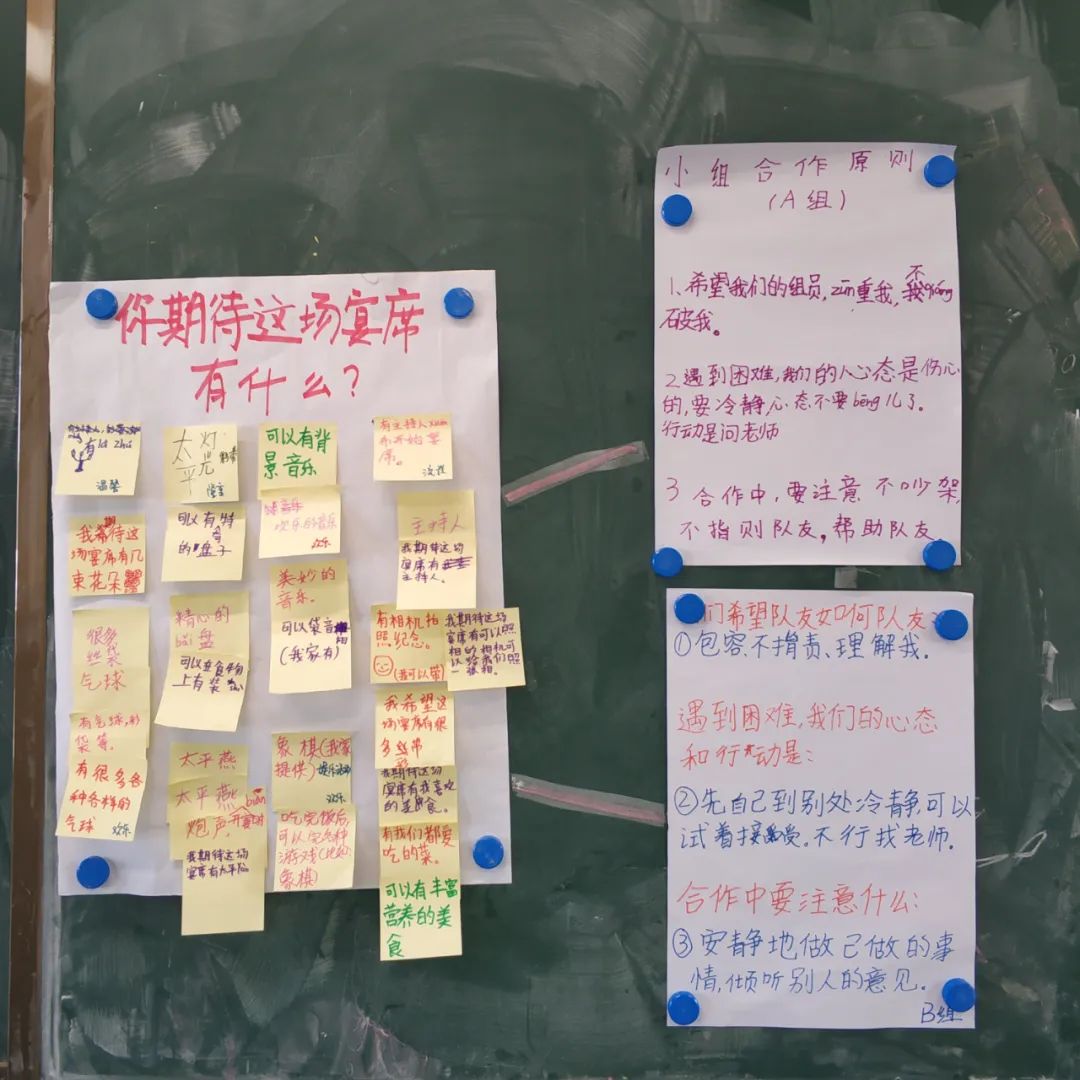 你期待这场宴席
有什么?
有là zhú
温馨
太平
灯光
可以有背
景音乐
有主持人xuān
布开始宴
席。
我期待这
场宴席有几
束花朵
可以有特
的盘子
欢乐的音乐
欢乐
主持人
我期待这场
宴席有
主持人。
很多
气球
有气球,彩
袋等。
有很多各
种各样的
气球
欢乐
精心的
可以在食物
上有装
美妙的
音乐。
可以袋音
(我家有)
有相机拍
照纪念。
(我可以带)
我期待这场
宴席有可以照
相的相机可
以给我们照
一张相。
我希望这
场宴席有很
多丝带
我期待这场
宴席有我喜欢
的美食。
有我们都爱
吃的菜。
可以有丰富
营养的美
食
太平燕
太平燕
炮声,
我期待这场
宴席有太平
象棋(我家
提供)
欢乐
吃完饭后,
可以玩各种
游戏(比如
象棋)
小组合作原则
(A组)
1、希望我们的组员,zūn重我,不
破我。
2.遇到困难,我们的心态是伤心
的,要冷静,心态不要bēng儿了.
行动是问老师
3 合作中,要注意不吵架,
不指则队友,帮助队友
们希望队友如何队友:
①包容不指责、理解我.
遇到困难,我们的心态
和行动是:
②先自己到别处冷静,可以
试着接受.不行找老师.
合作中要注意什么:
③安静地做己做的事
情,倾听别人的意见.
B组